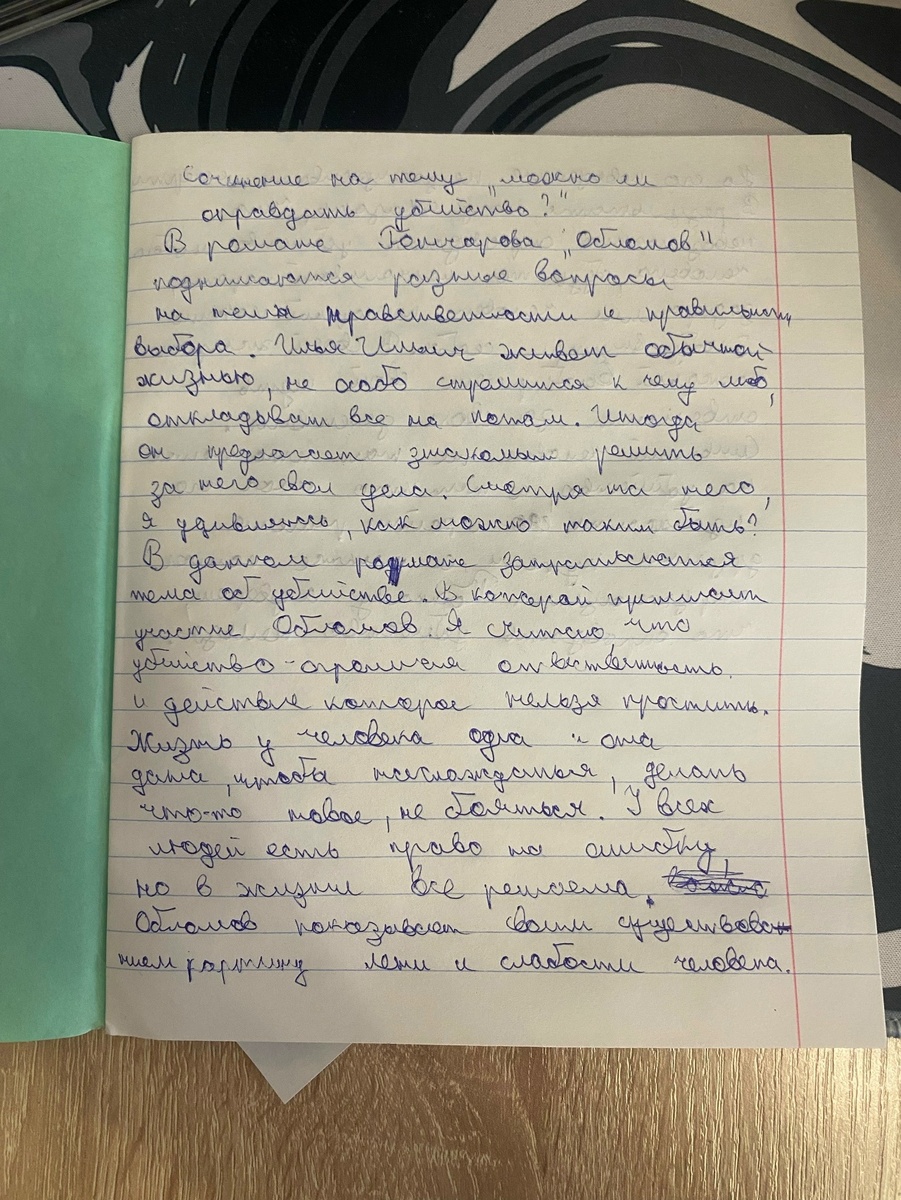 Сочинение на тему „можно ли
оправдать убийство?"
В романе Гончарова „Обломов"
поднимаются разные вопросы
на темы нравственности и правильности
выбора. Илья Ильич живет обычной
жизнью, не особо стремится к чему либо,
откладывает все на потом. Иногда
он предлагает знакомым решить
за него свои дела. Смотря на него,
я удивляюсь, как можно таким быть?
В данном романе затрагивается
тема об убийстве. В которой принимает
участие Обломов. Я считаю что
убийство-огромная ответственность
и действие которое нельзя простить.
Жизнь у человека одна и она
дана, чтобы наслаждаться, делать
что-то новое, не бояться. У всех
людей есть право на ошибку,
но в жизни все решаемо.
Обломов показывает своим существова-
нием картину лени и слабости человека.